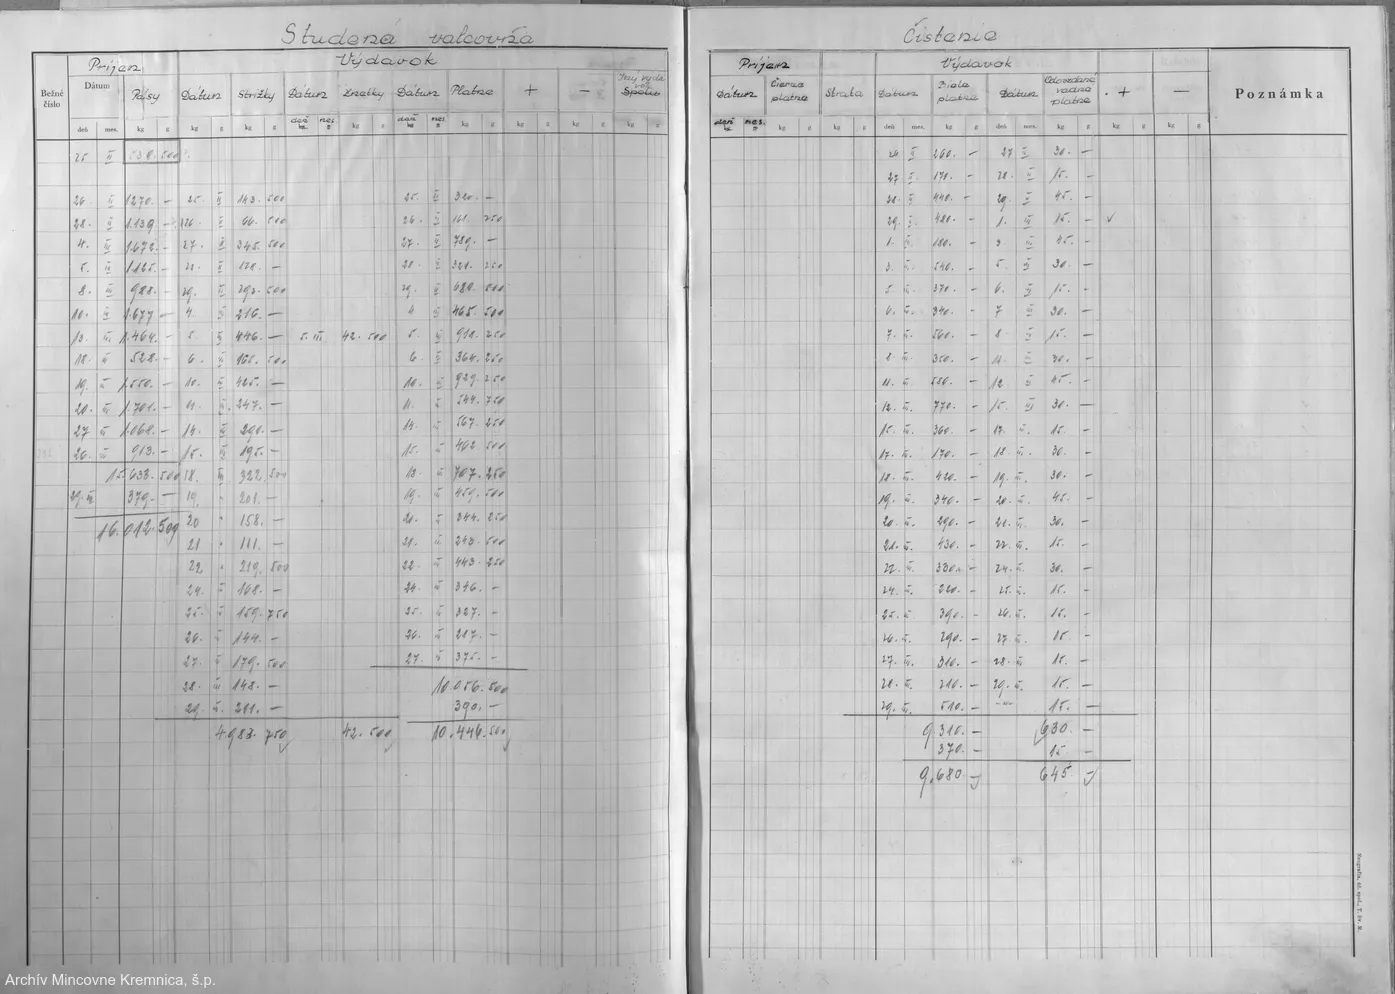 Studená valcovňa
Príjem Výdavok
Bežné číslo Dátum Pásy Dátum Strižky Dátum Dátum Platne + — Spolu
deň mes. kg g kg g kg g deň mes. kg g deň mes. kg g kg g kg g kg g
25 II 500
26 II 1270. — 25. II 143. 500 25. II 320. —
28. II 1.139 — 26. II 66. 500 26. II 161. 250
4. III 1.672. — 27. II 345. 500 27. II 789. —
5. III 1.125. — II — II 321. 250
8. III 988. — 29. II 293. 500 29. II 680. 000
10. III 1.677 — 4. III 216. — 4 III 465. 500
13. III 1.464. — 5. III 446. — 5. III. 42. 500 5. III 918. 250
18. III 528. — 6. III 165. 500 6. III 364. 250
19. III 1.550. — 10. III 425. — 10. III 929. 250
20. III 1.701. — 11. III. 247. — 11. III 544. 750
27 III 1.060. — 14. III 290. — 14. III 567. 250
26. III 913. — 15. III 195. — 15. III 462 500
15.633. 500 18. III 322. 500 III 707. 250
29. III 379. — 19. " 201. — 19. III 459. 500
16.012. 500 20 " 158. — 20. III 344. 250
21 " 111. — 21. III 243. 500
22 " 219. 500 22. III 443. 250
24. III 168. — 24. III 346. —
25. III 159. 750 25. III 327. —
26. III 144. — 26. III 217. —
27. III 179. 500 27. III 375. —
28. III 148. — 10.056. 500
29. III. 211. — 390. —
4 983. 750 42. 500 10.446. 500
Čistenie
Príjem Výdavok
Dátum Čierne platne Strata Dátum Biele platne Dátum Odovzdané vadné platne + — Poznámka
deň mes. kg g kg g deň mes. kg g deň mes. kg g kg g kg g
26 II 260. — 27 II 30. —
27 II. 170. — 28. II 15. —
28. II 440. — 29. II 45. —
29. II. 480. — 1. III 15. — √
1. III. 180. — 3. III 45. —
3. III. 540. — 5. III 30. —
5. III. 370. — 6. III 15. —
6. III. 340. — 7 III 30. —
7. III. 560. — 8. III 15. —
8. III. 350. — 11. III 30. —
11. III. 550. — 12. III 45. —
12. III. 770. — 15. III 30. —
15. III. 360. — 17. III. 15. —
17. III. 170. — 18. III. 30. —
18. III. 420. — 19. III. 30. —
19. III. 340. — 20. III. 45. —
20. III. 290. — 21. III. 30. —
21. III. 430. — 22. III. 15. —
22. III. 330. — 24. III. 30. —
24. III. 220. — 25. III. 15. —
25. III. 390. — 26. III. 15. —
26. III. 290. — 27 III. 15. —
27. III. 310. — 28. III 15. —
28. III. 210. — 29. III. 15. —
29. III. 510. — 15. —
9.310. — 630. —
370. — 15 —
9.680. — 645. —
Archív Mincovne Kremnica, š.p.